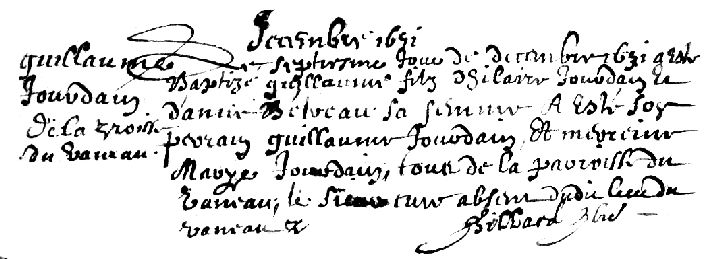 Decembre 1651
guillaume
Jourdain
de la proisse
du vaneau
Le septiesme Jour de decembre 1651 a este
Baptizé guillaume filz d'hilaire Jourdain et
d'anne Belveau sa femme A esté son
perrain guillaume Jourdain, Et mereine
Marye Jourdain, tous de la paroisse du
vaneau, le curé absent dudit lieu du
vaneau